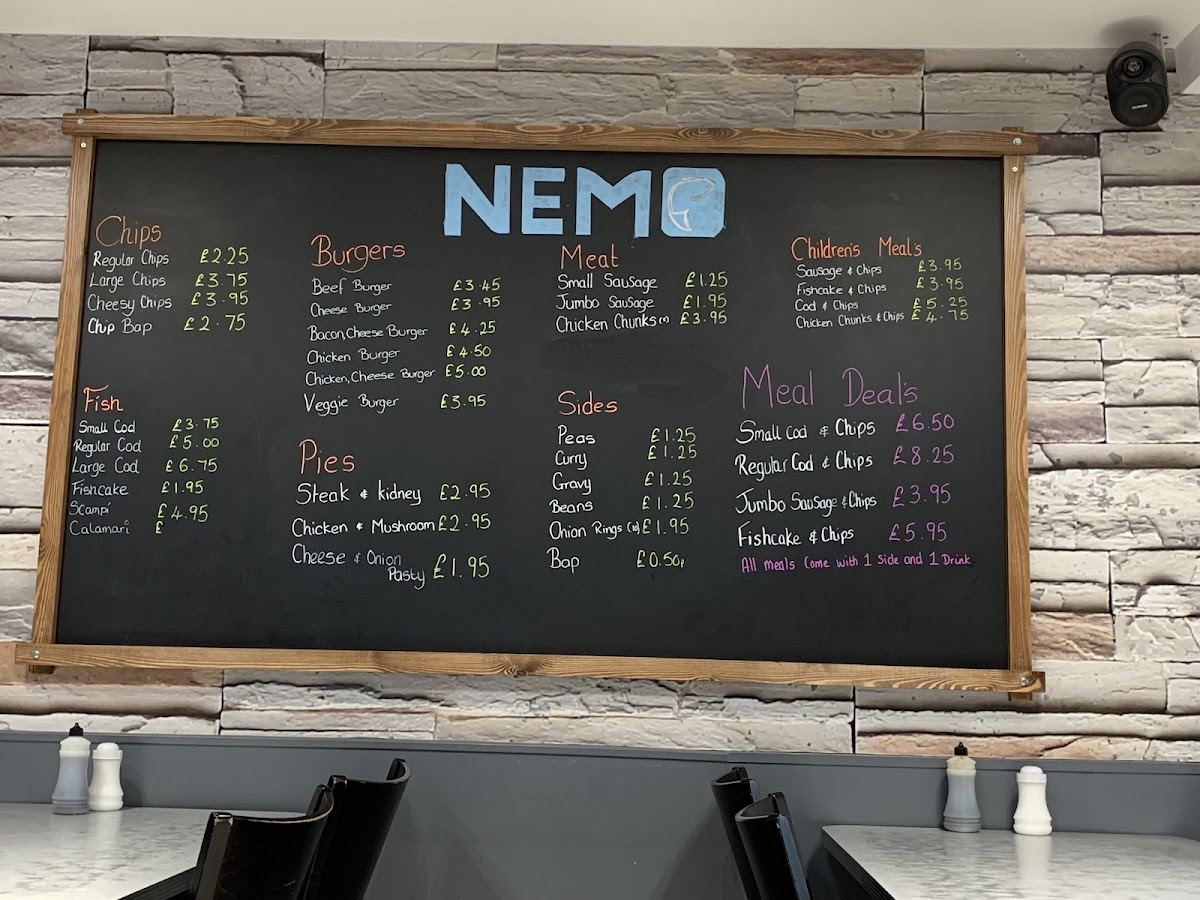 NEMO
Chips
Regular Chips £2.25
Large Chips £3.75
Cheesy Chips £3.95
Chip Bap £2.75
Fish
Small Cod £3.75
Regular Cod £5.00
Large Cod £6.75
Fishcake £1.95
Scampi £4.95
Calamari £
Burgers
Beef Burger £3.45
Cheese Burger £3.95
Bacon, Cheese Burger £4.25
Chicken Burger £4.50
Chicken, Cheese Burger £5.00
Veggie Burger £3.95
Pies
Steak & kidney £2.95
Chicken & Mushroom £2.95
Cheese & Onion
Pasty £1.95
Meat
Small Sausage £1.25
Jumbo Sausage £1.95
Chicken Chunks £3.95
Sides
Peas £1.25
Curry £1.25
Gravy £1.25
Beans £1.25
Onion Rings (10) £1.95
Bap £0.50p
Children's Meals
Sausage & Chips £3.95
Fishcake & Chips £3.95
Cod & Chips £5.25
Chicken Chunks & Chips £4.75
Meal Deal's
Small Cod & Chips £6.50
Regular Cod & Chips £8.25
Jumbo Sausage & Chips £3.95
Fishcake & Chips £5.95
All meals Come with 1 Side and 1 Drink